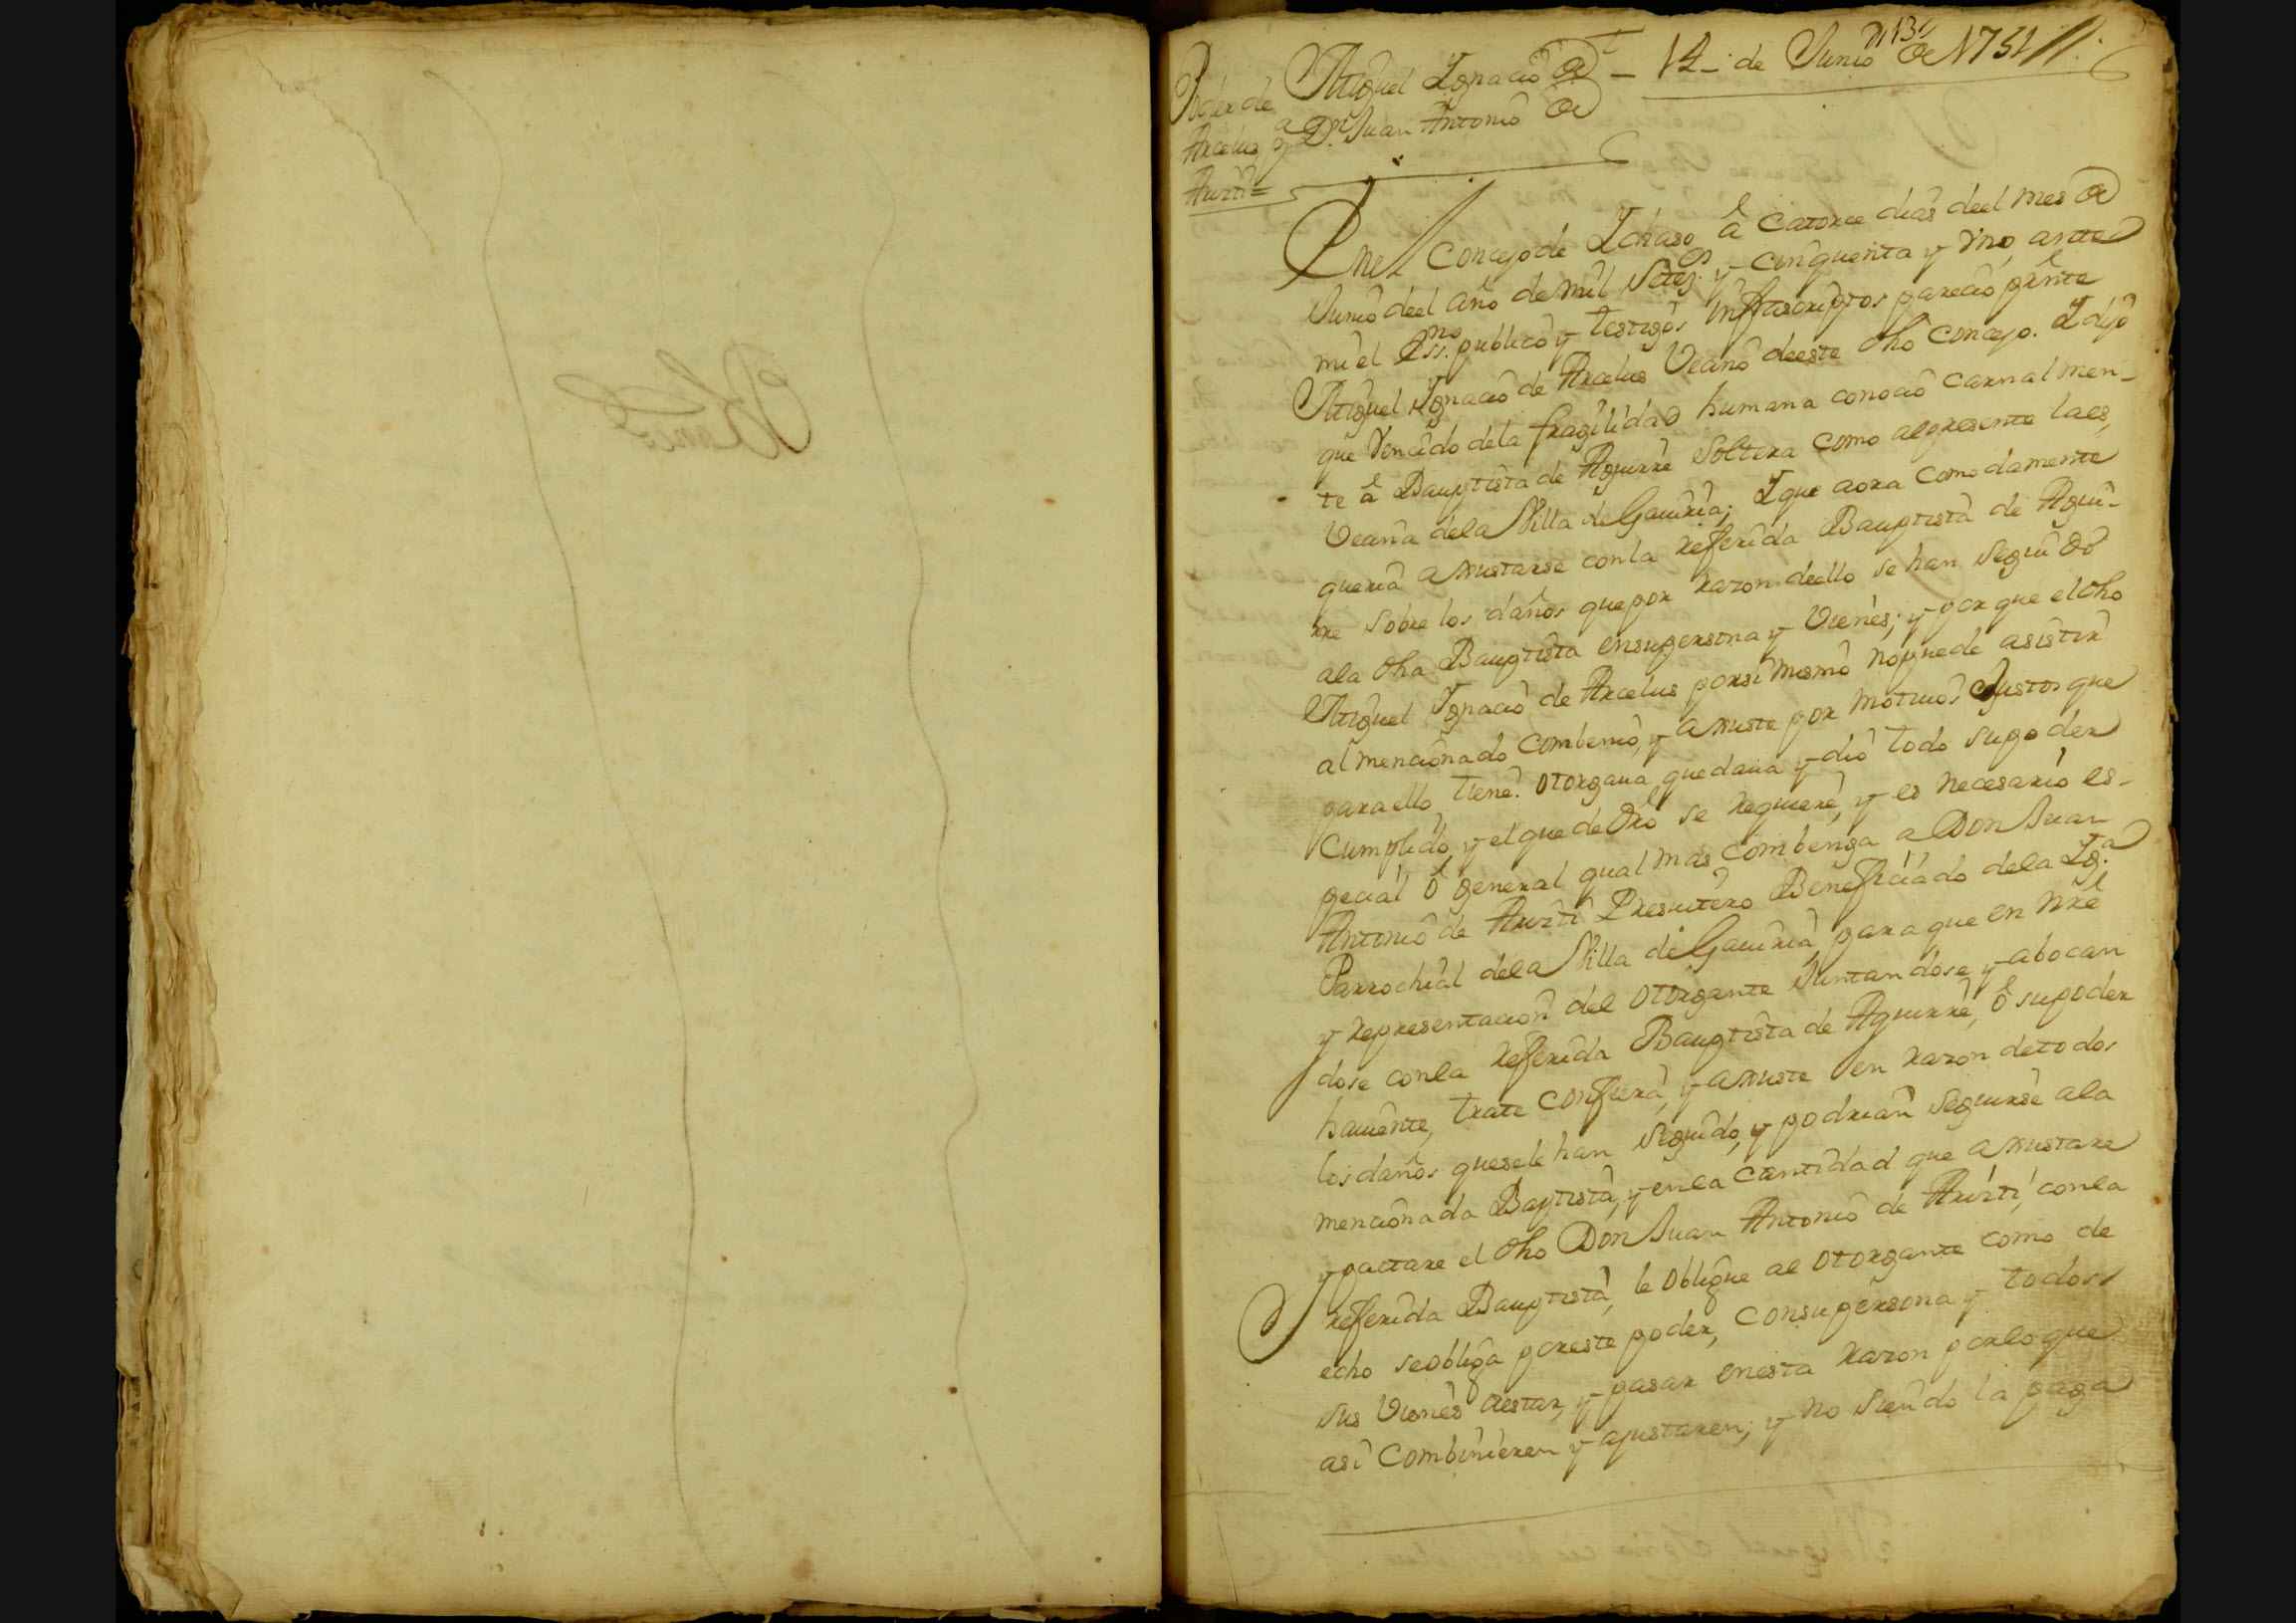 Poder de Miguel Ignacio de – 14 – de Junio de 1751 //.
Arcelus pa Dn. Juan Antonio de
Aurizti =
En el Concejo de Ichaso â Catorce dias deel mes de
Junio deel año de mil Setezos. y cinquenta y Vno, ante
mi el Essno. publico y testigos infrascriptos parecio prente
Miguel Ignacio de Arcelus Vecino deeste dho Concejo. I dijo
que Vencido dela fragilidad humana conocio Carnalmen-
te â Bauptista de Aguirre Soltera como alpresente laes,
Vecina dela Villa de Gauiria; I que aora comodamente
queria aJustarse conla referida Bauptista de Agui-
rre sobre los daños quepor razon deello se han Seguido
ala dha Bauptista ensupersona y Vienes; y por que el dho
Miguel Ignacio de Arcelus porsi mismo nopuede asistir
al mencionado Combenio, y aJuste por motiuos Justos que
paraello tiene. otorgaua quedaua y dió todo supoder
Cumplido, y elquede dro se requiere, y es necesario es-
pecial ô general qual mas combenga a Don Juan
Antonio de Aurizti Presuitero Beneficiado dela Iga.
Parrochial dela Villa de Gauiria, para que en nre
y representacion del otorgante Juntandose, y abocan
dose conla referida Bauptista de Aguirre, ô supoder
hauiente, trate confiera, y aJuste en razon detodos
los daños quesele han seguido, y podrian seguirse ala
mencionada Baptista, y enla cantidad que aJustare
y pactare el dho Don Juan Antonio de Aurizti, conla
referida Bauptista, le obligue al otorgante como de
echo seobliga poreste poder, consupersona y todos
sus Vienes aestar, y pasar enesta razon porloque
asi Combinieren y ajustaren; y no siendo la paga